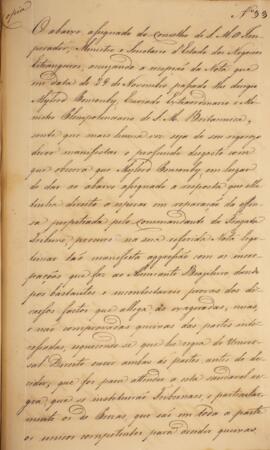 Copia
Nº 33
O abaixo assignado do Conselho de S. M. O Im-
perador, Ministro e Secretario d'Estado dos Negocios
Estrangeiros, accusando a recepção da Nota que
em data de 24 de Novembro passado lhe dirigio
Mylord Ponsonby, Enviado Extraordinario e Mi-
nistro Plenipotenciario de S. M. Britannica,
sente que mais huma vez seja do seu rigoroso
dever manifestar o profundo desgosto com
que observa que Mylord Ponsonby em lugar
de dar ao abaixo assignado a resposta que elle
tinha direito a esperar em reparação da offen-
sa perpetrada pelo Commandante da Fragata
procure na sua referida Nota legi-
timar tão manifesta aggressão com as incre-
pações que faz ao Almirante Brazileiro, dando
por bastantes e incontestaveis provas dos di-
versos factos que allega as vagas, e
e não comprovadas queixas das partes inte-
ressadas, esquecendo-se que he regra de Univer-
sal Direito ouvir ambas as partes antes de de-
cidir, que foi para attender a esta saudavel re-
gra, que se instituirão Tribunaes, e particular-
mente os de Prezas, que são em toda a parte
os unicos competentes para decidir queixas